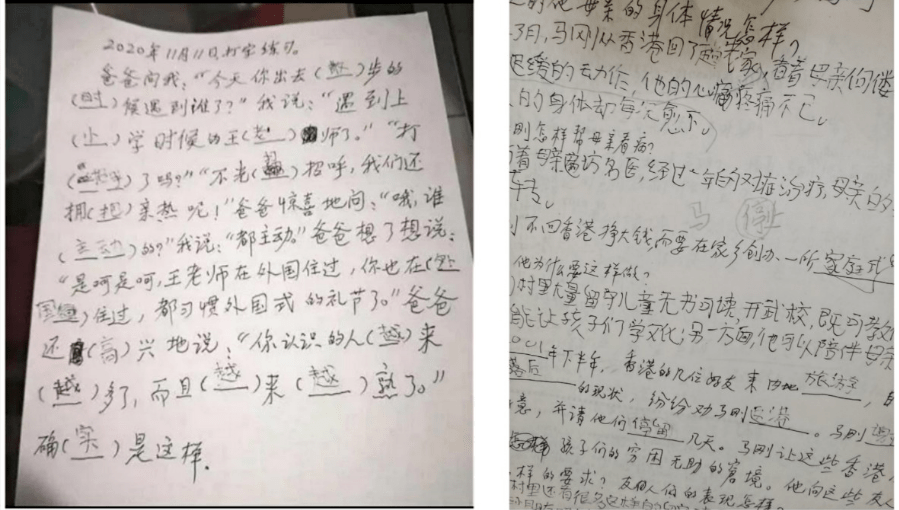 2020年11月11日,打字练习。
爸爸问我:“今天你出去( )步的
(时)候遇到谁了?”我说:“遇到上
(小)学时候的王( )师了。”“打
( )了吗?”“不光( )招呼,我们还
拥(抱)亲热呢!”爸爸惊喜地问:“哦,谁
(主动)的?”我说:“都主动。”爸爸想了想说:
“是呵是呵,王老师在外国住过,你也在(
国)住过,都习惯外国式的礼节了。”爸爸
还(高)兴地说:“你认识的人(越)来
(越)多了,而且(越)来(越)熟了。”
确(实)是这样.
的他母亲的身体情况怎样?
3月,马刚从香港回了老家,看着母亲佝偻
迟缓的动作,他的心痛疼痛不已。
的身体却每况愈下。
刚怎样帮母亲看病?
着母亲遍访名医,经过 年的 治疗,母亲的
马 停止
不回香港挣大钱,而要在家乡创办一所家庭式
他为什么要这样做?
村里大量留守儿童无书可读,开武校,既可教
能让孩子们学文化;另一方面,他可以陪伴母亲
001年下半年,香港的几位好友来内地旅游,
落后的现状,纷纷劝马刚返港。马刚
意,并请他们停留几天。马刚让这些香港
孩子们的穷困无助的窘境。他向这些友人
样的要求?友人们的表现怎样
村里还有很多这样的